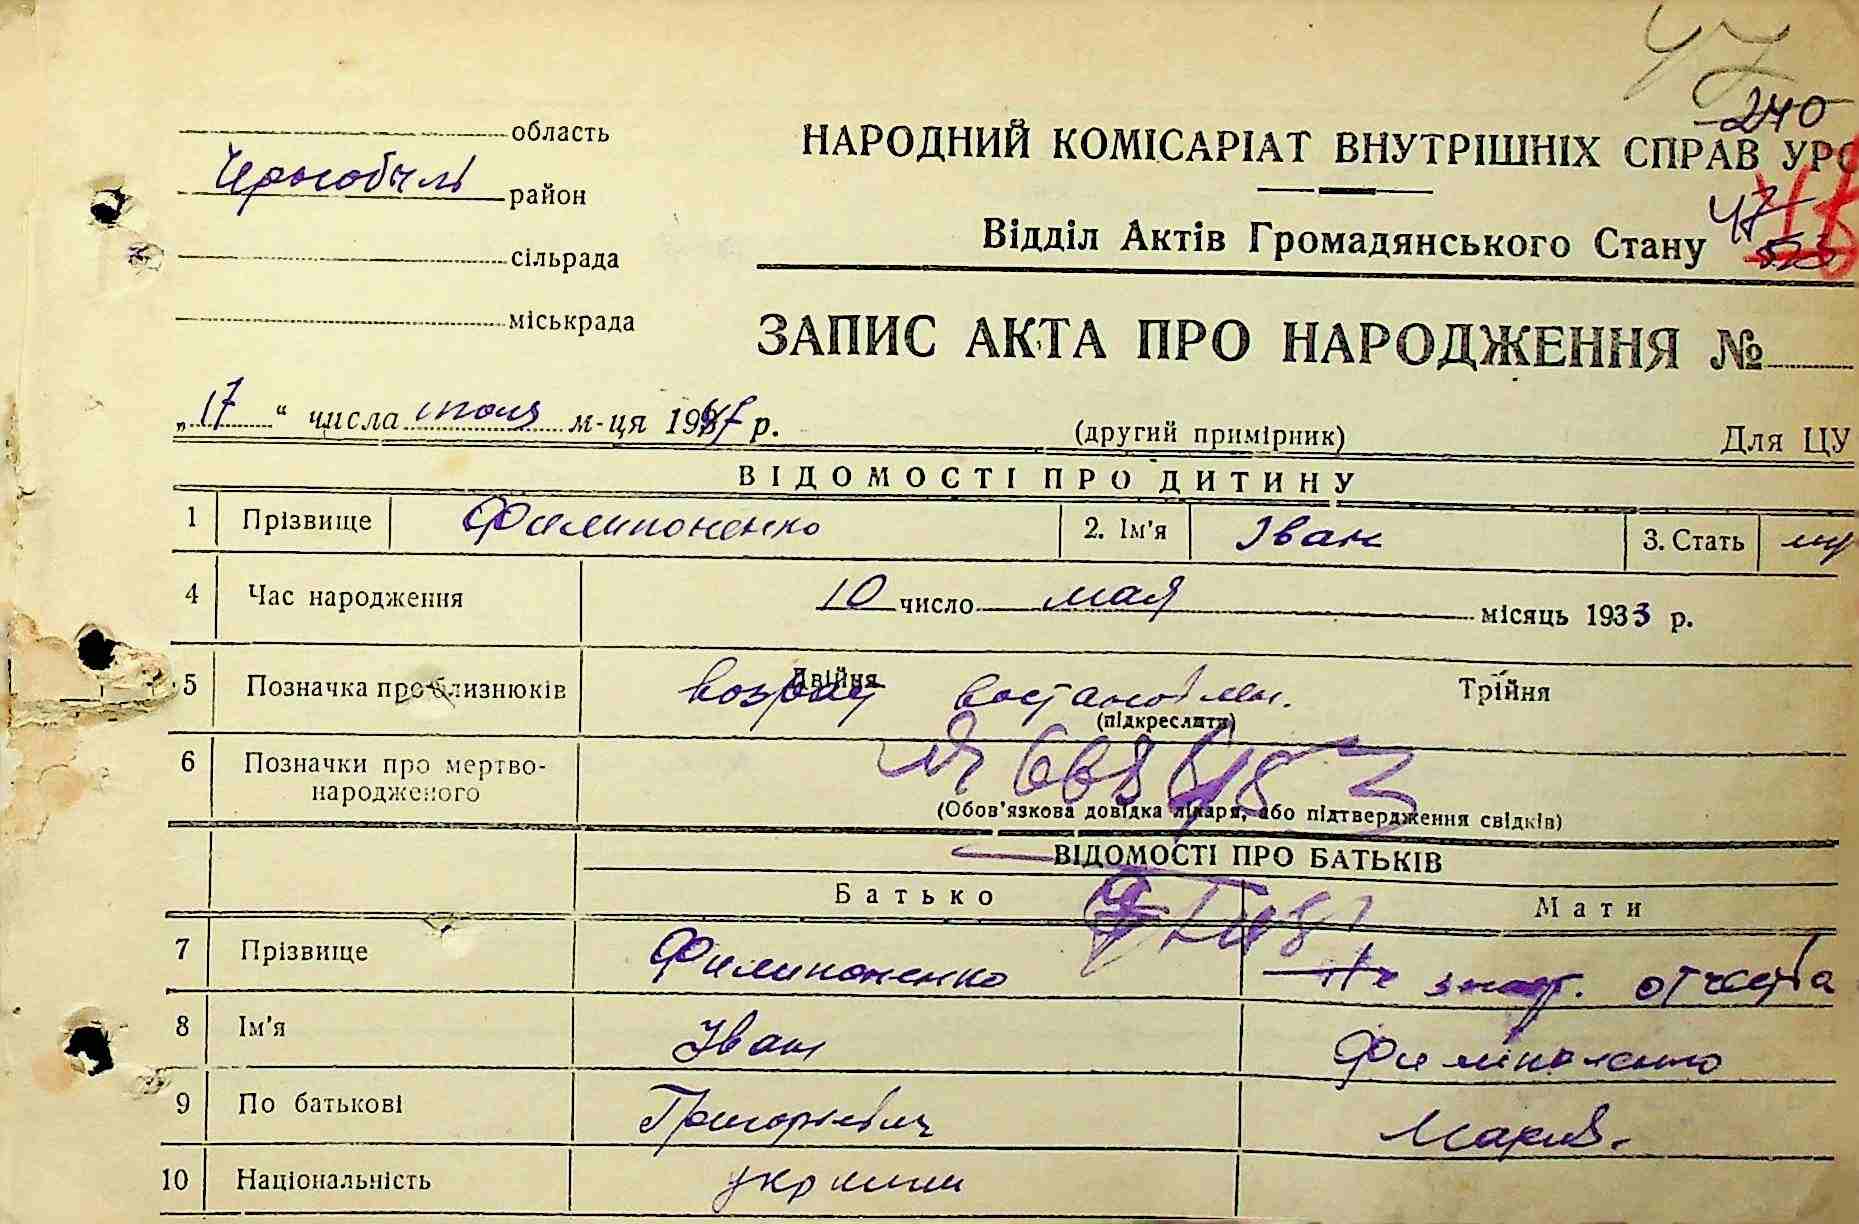 47
240
область
НАРОДНИЙ КОМІСАРІАТ ВНУТРІШНІХ СПРАВ УРС
Чернобыль район
Відділ Актів Громадянського Стану 47
сільрада
міськрада
ЗАПИС АКТА ПРО НАРОДЖЕННЯ №
„17“ числа июля м-ця 1947 р. (другий примірник) Для ЦУ
ВІДОМОСТІ ПРО ДИТИНУ
1 Прізвище Филипоненко 2. Ім'я Іван 3. Стать му
4 Час народження 10 число мая місяць 1933 р.
5 Позначка про близнюків Двійня возраст востановлен. Трійня
(підкреслити)
6 Позначки про мертво-
народженого
(Обов'язкова довідка лікаря, або підтвердження свідків)
ВІДОМОСТІ ПРО БАТЬКІВ
Батько Мати
7 Прізвище Филипоненко Не знает. отчества
8 Ім'я Іван Филипоненко
9 По батькові Григорьевич Мария.
10 Національність